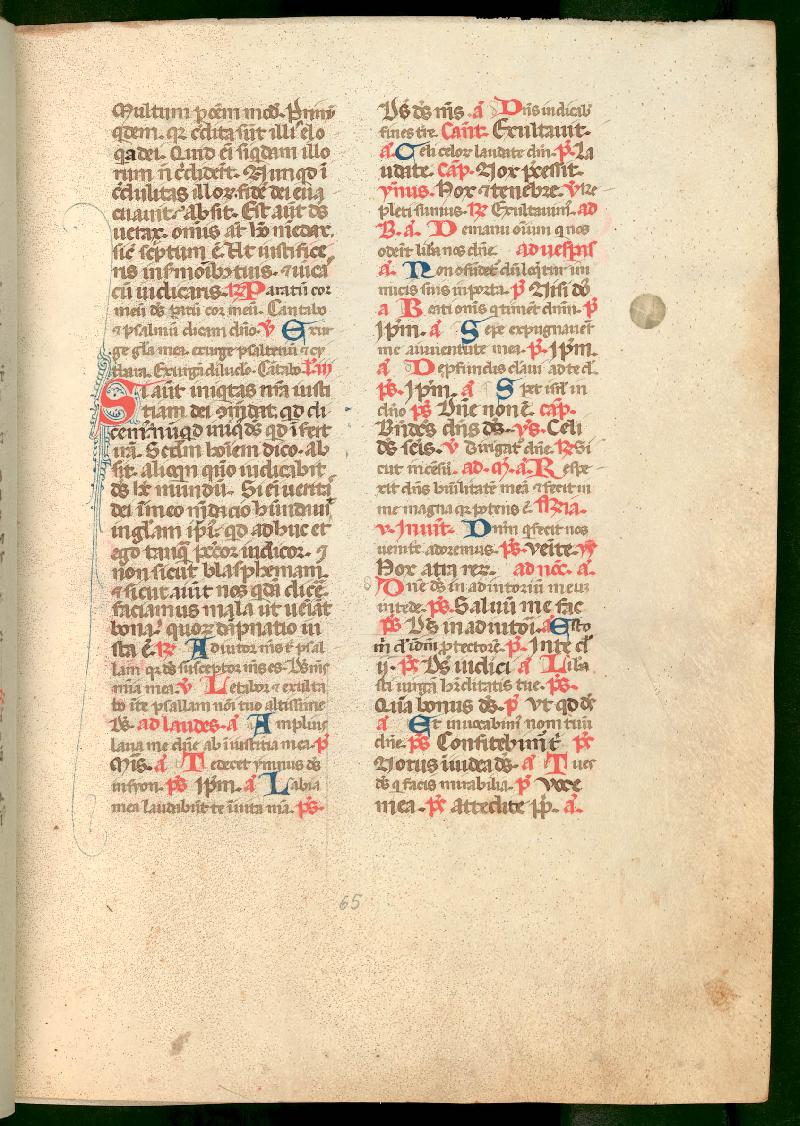 Multum p̄ om̄em mod. Primū
qdem. qz c̄dita sūt illi elo
qa dei. Quid eī si qdam illo
rum n̄ c̄dider̄t. Nunqd ī
c̄dulitas illoꝝ fidē dei eua
cuauit. absit. Est aūt ds̄
uerax. omīs aūt hō mēdax.
sic̄ sc̄ptum ē. Ut iustifice
ris in s̄monib tuis. ⁊ uīcas
cū iudicaris. ꝶ Paratū cor
meū ds̄ patū cor meū. Cantabo
⁊ psalmū dicam dn̄o. ℣ Exur
ge gl̄a mea. exurge psalteriū ⁊ cy
thara. Exurgā diluclo. Cātabo.
Si aūt iniqtas nr̄a iusti
tiam dei ꝯmēdat. qd di
cem. nūqd iniqus ds̄ qd īfert
irā. Scdm hoīem dico. ab
sit. alioqn quō iudicabit
ds̄ hc̄ mundū. Si eī ueritas
dei ī meo mēdacio habundauit
in gl̄am ipī. qd adhuc et
ego tanq pccor iudicor. ⁊
non sicut blasphemam
⁊ sicut aiūt nos qdā dicē.
faciamus mala ut ueiāt
bona. quoꝝ dāpnatio iu
sta ē. ꝶ Adiutor ms̄ t psal
lam qz ds̄ susceptor ms̄ es. ds̄ ms̄
mīa mea. ℣ Letabor ⁊ exulta
bo ī te psallam nōi tuo altissime
Ds̄. ad laudes. a Amplius
laua me dn̄e ab iniustitia mea. p̄
Mis̄. a Te decet ymnus ds̄
in syon. ps̄ Ipm̄. a Labia
mea laudabūt te ī uita mā. ps̄.
Ds̄ ds̄ ms̄. a Dn̄s iudicab
fines tre. Cant. Exultauit.
a. Celi celoꝝ laudate dm̄. p̄. La
udate. Cap. Nox p̄cessit.
ymus. Nox ⁊ tenebre. ℣ Re
pleti sumus. ꝶ Exultauim. ad
B. a. De manu oīum q nos
oder̄t liba nos dn̄e. ad uesp̄as
a. Non ꝯfūdet dū loqtur ini
micis suis in porta. p̄ Nisi ds̄
a Beati omīs q timēt dnm̄. p̄
Ipm̄. a Sepe expugnauer̄t
me a iuuentute mea. p̄. Ipm̄.
a De pfundis clam ad te d.
ps̄. Ipm̄. a Spet isr̄l in
dn̄o ps̄ Dn̄e non ē. cap.
Bn̄dcs dn̄s ds̄. ys. Celi
ds̄ scis. ℣ Dirigat dn̄e. ꝶ Si
cut incēsū. ad. m̄. a. Respe
xit dn̄s hūilitatē meā ⁊ fecit in
me magna qz potens ē.
Inuit. Dnm̄ q fecit nos
uenite adoremus. ps̄. Veite. ys
Nox atra reꝝ. ad noc̄. a.
Dn̄e ds̄ in adiutoriū meuz
intēde. ps̄. Saluū me fac
ps̄ Ds̄ in adiutoī. a Esto
m̄ dn̄e ī dm̄ ptectorē. p̄. In te d
ij. ps̄ Ds̄ iudici. a Liba
sti uirgā hr̄ditatis tue. ps̄.
Quā bonus ds̄. p̄ Vt qd ds̄
a Et inuocabim nom tuū
dn̄e. ps̄ Confitebim t̄ ps̄
Notus ī iudea ds̄. a Tu es
ds̄ q facis mirabilia. p̄ Voce
mea. ps̄ attēdite p̄p̄. a.
65